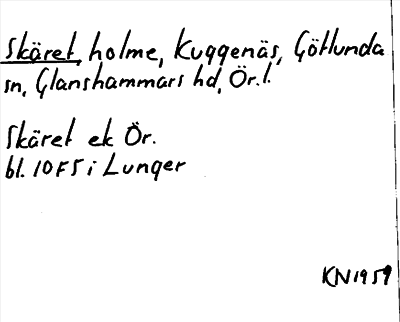 Skäret, holme, Kuggenäs, Götlunda
sn, Glanshammars hd, Ör.l.
Skäret ek Ör.
bl. 10F5 i Lunger
KN1959